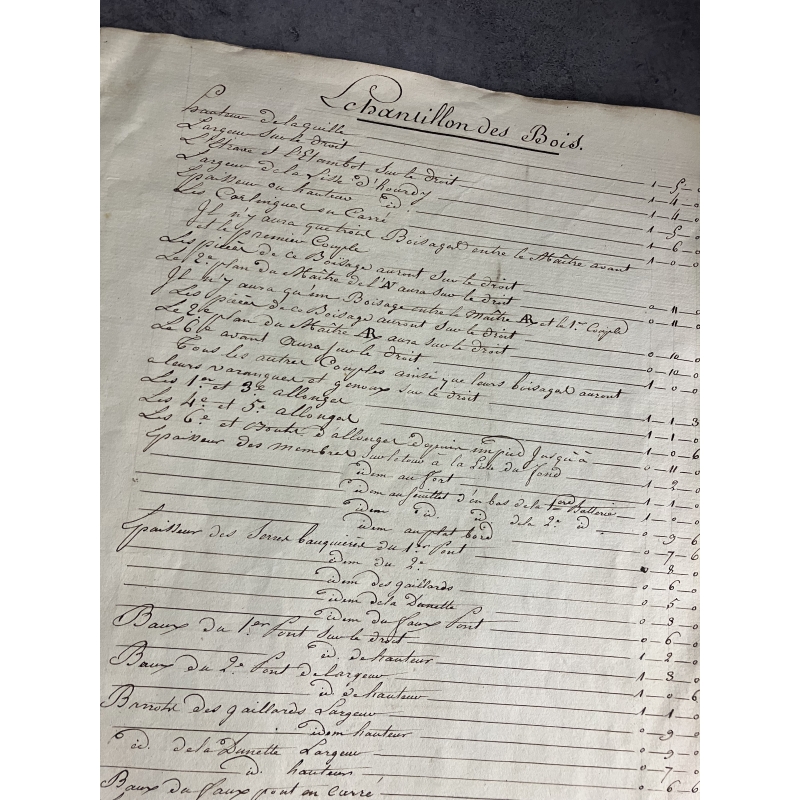 Echantillon des Bois.
hauteur de la quille 1 – 5 – 0
Largeur sur le droit 1 – 4 – 0
L'Etrave et l'Etambot sur le droit 1 – 4 – 0
Largeur de la Lisse d'hourdy 1 – 5 – 0
Epaisseur ou hauteur id. 1 – 6 – 0
Les Carlingues en Carré 1 – 0 – 0
Il n'y aura que trois Boisages entre le Maître avant
et le premier Couple
Les pièces de ce Boisage auront sur le droit 0 – 11 – 0
Le 2e. plan du Maître de l'AV aura sur le droit 0 – 11 – 0
Il n'y aura qu'un Boisage entre le Maître AR et le 1er Couple
Les pièces de ce Boisage auront sur le droit 0 – 10 – 0
Le 2e plan du Maître AR aura sur le droit 0 – 10 – 0
Le 6e avant aura sur le droit 1 – 0 – 0
Tous les autres Couples ainsi que leurs boisages auront
a leurs varangues et genoux sur le droit 1 – 1 – 3
Les 1er et 3e allonges 1 – 1 – 0
Les 4e et 5e allonges 1 – 0 – 6
Les 6e. et Bouts d'allonges depuis un pied Jusqu'à 0 – 11 – 0
Epaisseur des membres sur le tour à la Lisse du fond 1 – 2 – 0
idem au fort 1 – 1 – 0
idem au feuillet d'en bas de la 1ere Batterie 1 – 0 –
idem id. id de la 2e. id 0 – 9 – 6
idem au plat bord 0 – 7 – 6
Epaisseur des Serres bauquières du 1er Pont 0 – 8 – 0
idem du 2e 0 – 6 – 0
idem des gaillards 0 – 5 – 0
idem de la Dunette 0 – 3 – 0
idem du faux Pont 0 – 6 – 0
Baux du 1er Pont sur le droit 1 – 2 – 0
id. de hauteur 1 – 3 – 0
Baux du 2e. Pont de largeur 1 – 0 – 6
id de hauteur 1 – 1 – 0
Barrots des gaillards Largeur 0 – 9 – 0
idem hauteur 0 – 9 –
id. de la Dunette Largeur 0 – 7 – 0
id. hauteur 0 – 6 – 6
Baux du faux pont en carré